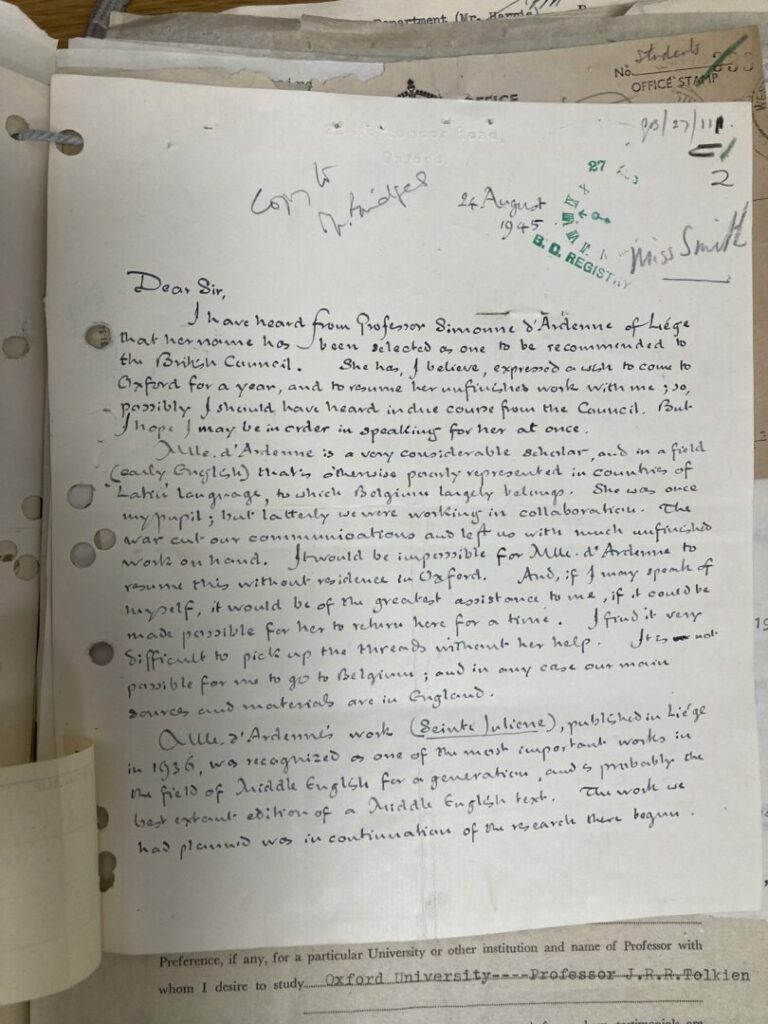 Department (Mr. Harris)
Students
No. 333
OFFICE STAMP
OFFICE
Road,
Oxford.
GB/27/111.
2
Copy to
Mr. Bridges
24 August
1945
27
B.C. REGISTRY
Miss Smith
Dear Sir,
I have heard from Professor Simonne d'Ardenne of Liége
that her name has been selected as one to be recommended to
the British Council. She has, I believe, expressed a wish to come to
Oxford for a year, and to resume her unfinished work with me; so,
possibly I should have heard in due course from the Council. But
I hope I may be in order in speaking for her at once.
Mlle. d'Ardenne is a very considerable scholar, and in a field
(early English) that is otherwise poorly represented in countries of
'Latin' language, to which Belgium largely belongs. She was once
my pupil; but latterly we were working in collaboration. The
war cut our communications and left us with much unfinished
work on hand. It would be impossible for Mlle. d'Ardenne to
resume this without residence in Oxford. And, if I may speak of
myself, it would be of the greatest assistance to me, if it could be
made possible for her to return here for a time. I find it very
difficult to pick up the threads without her help. It is not
possible for me to go to Belgium; and in any case our main
sources and materials are in England.
Mlle. d'Ardenne's work (Seinte Juliene), published in Liége
in 1936, was recognized as one of the most important works in
the field of Middle English for a generation, and is probably the
best extant edition of a Middle English text. The work we
had planned was in continuation of the research there begun.
Preference, if any, for a particular University or other institution and name of Professor with
whom I desire to study Oxford University----Professor J.R.R.Tolkien